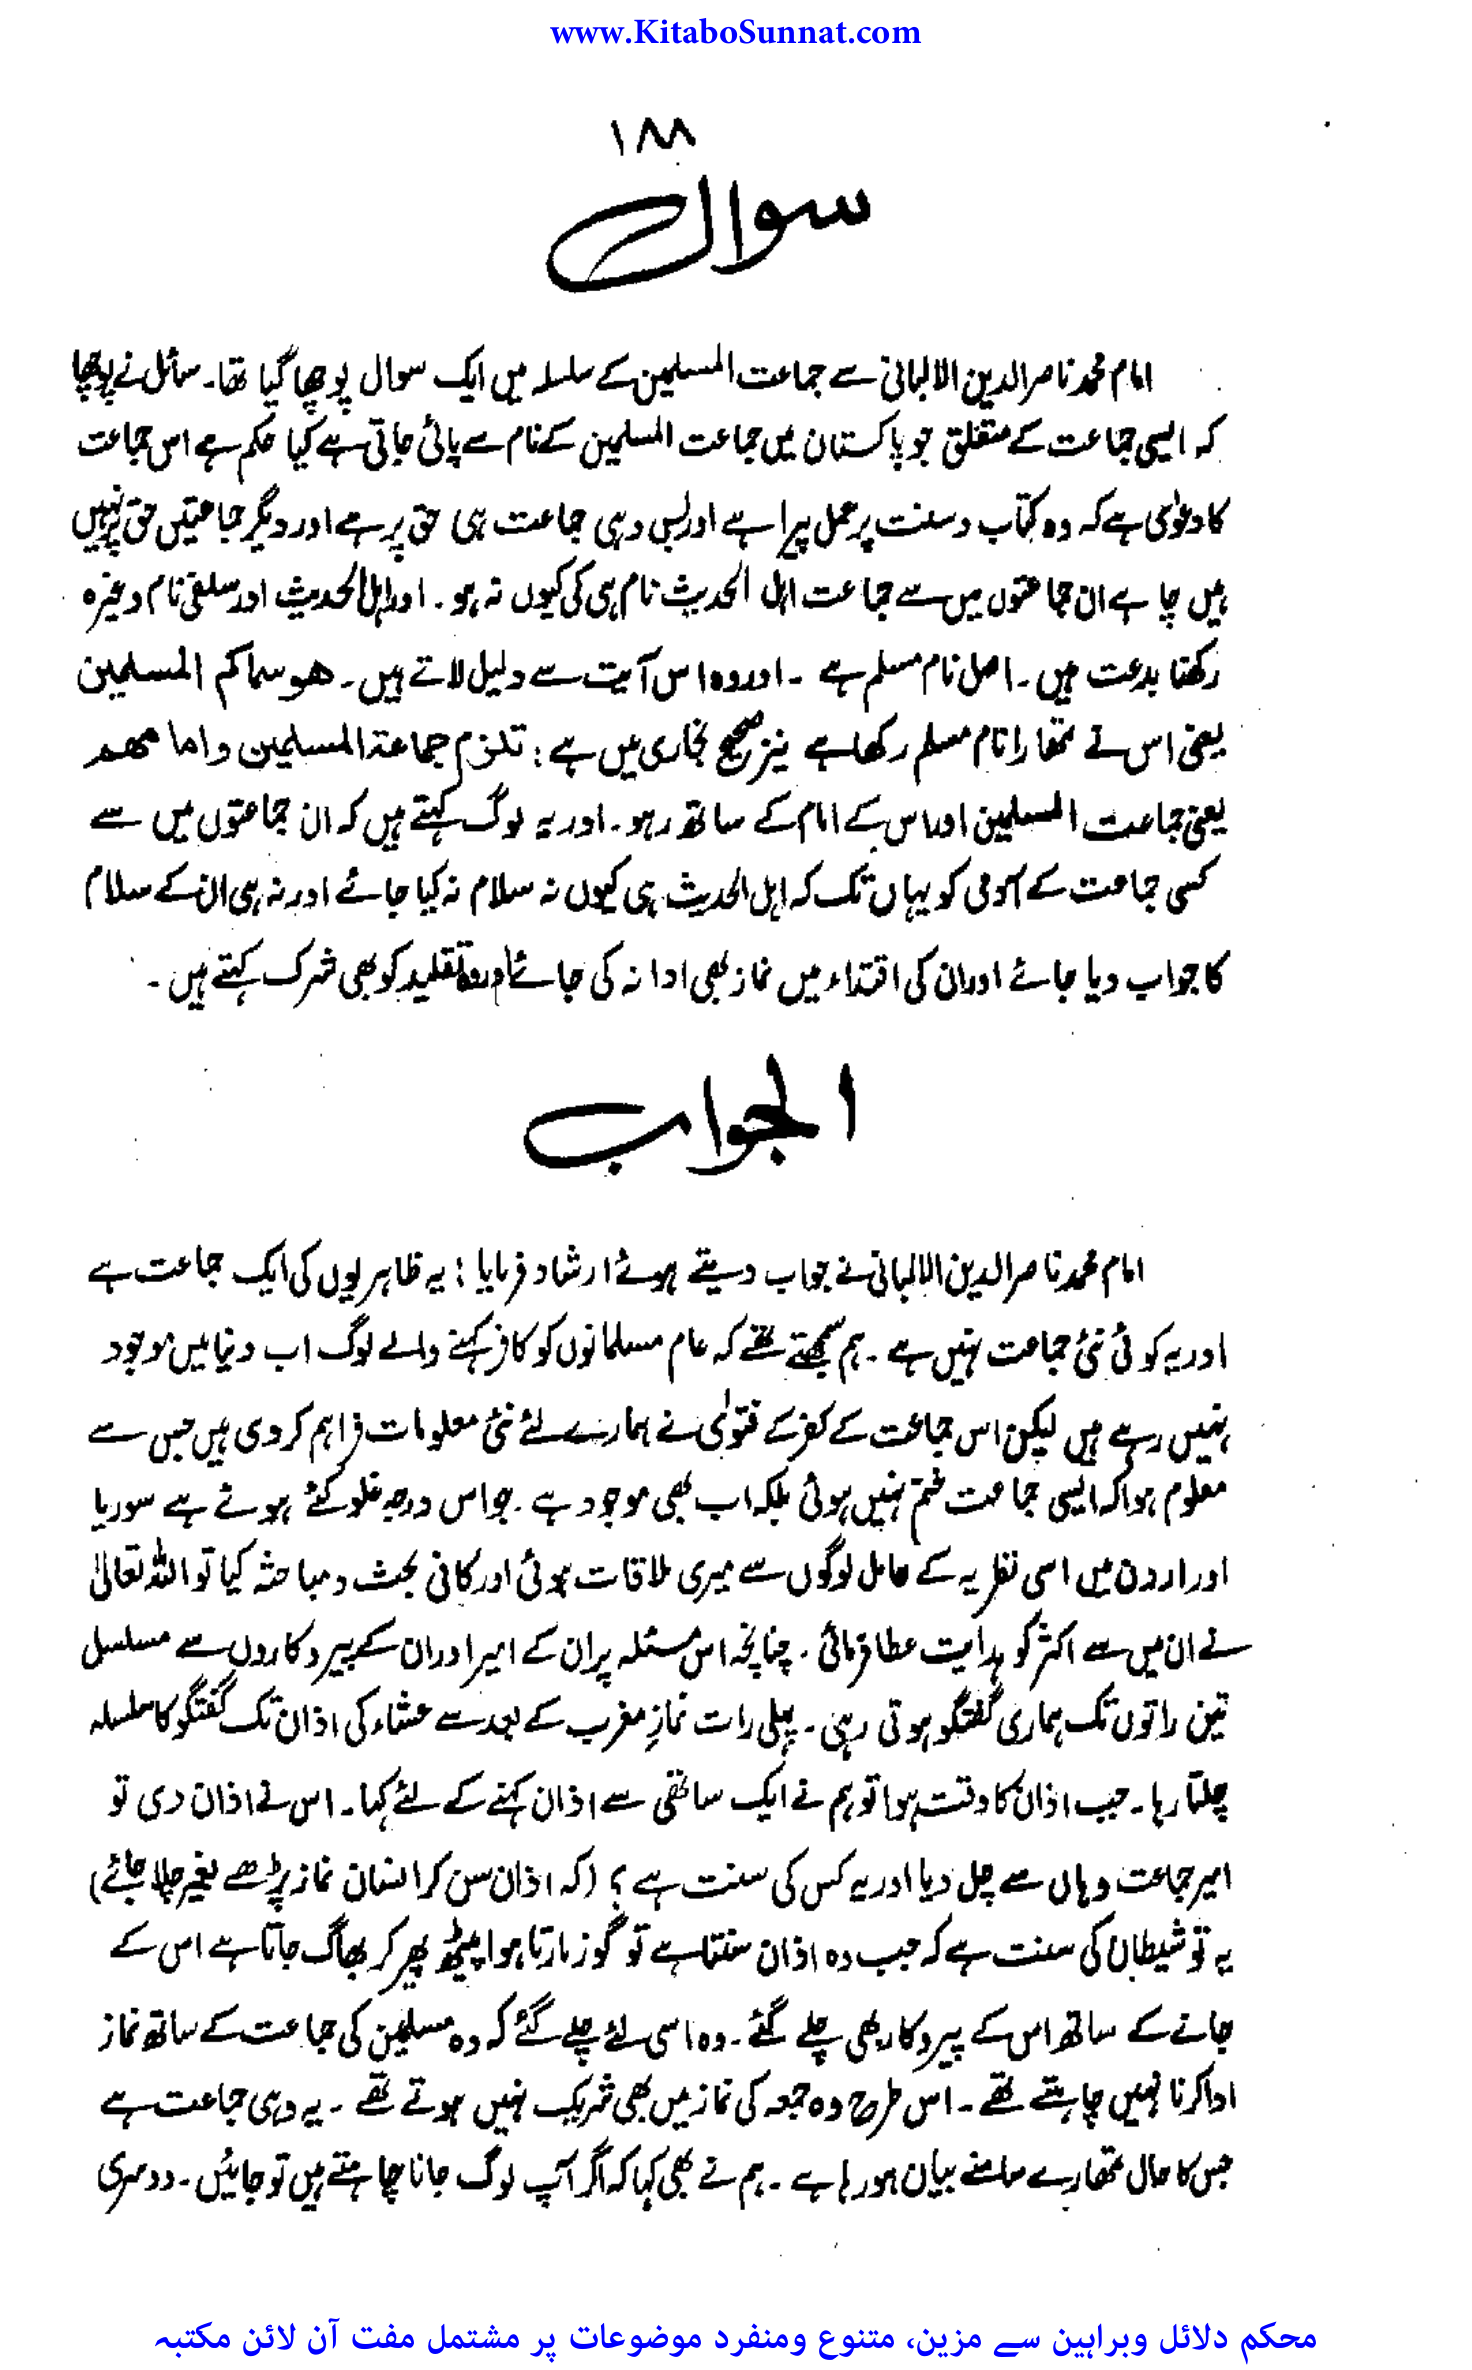 www.KitaboSunnat.com
۱۸۸
سوال
امام محمد ناصر الدین الالبانی سے جماعت المسلمین کے سلسلہ میں ایک سوال پوچھا گیا تھا۔ سائل نے پوچھا
کہ ایسی جماعت کے متعلق جو پاکستان میں جماعت المسلمین کے نام سے پائی جاتی ہے کیا حکم ہے اس جماعت
کا دعوٰی ہے کہ وہ کتاب و سنت پر عمل پیرا ہے اور بس وہی جماعت ہی حق پر ہے اور دیگر جماعتیں حق پر نہیں
ہیں چاہے ان جماعتوں میں سے جماعت اہل الحدیث نام ہی کی کیوں نہ ہو۔ اور اہل الحدیث اور سلفی نام وغیرہ
رکھنا بدعت ہیں۔ اصل نام مسلم ہے ۔ اور وہ اس آیت سے دلیل لاتے ہیں۔ ھو سماکم المسلمین
یعنی اس نے تمھارا نام مسلم رکھا ہے نیز صحیح بخاری میں ہے : تلزم جماعة المسلمین و امامھم
یعنی جماعت المسلمین اور اس کے امام کے ساتھ رہو۔ اور یہ لوگ کہتے ہیں کہ ان جماعتوں میں سے
کسی جماعت کے آدمی کو یہاں تک کہ اہل الحدیث ہی کیوں نہ سلام نہ کیا جائے اور نہ ہی ان کے سلام
کا جواب دیا جائے اور ان کی اقتداء میں نماز بھی ادا نہ کی جائے اور وہ تقلید کو بھی شرک کہتے ہیں ۔
الجواب
امام محمد ناصر الدین الالبانی نے جواب دیتے ہوئے ارشاد فرمایا : یہ ظاہریوں کی ایک جماعت ہے
اور یہ کوئی نئی جماعت نہیں ہے ۔ ہم سمجھتے تھے کہ عام مسلمانوں کو کافر کہنے والے لوگ اب دنیا میں موجود
نہیں رہے ہیں لیکن اس جماعت کے کفر کے فتوٰی نے ہمارے لئے نئی معلومات فراہم کر دی ہیں جس سے
معلوم ہوا کہ ایسی جماعت ختم نہیں ہوئی بلکہ اب بھی موجود ہے ۔ جو اس درجہ غلو کئے ہوئے ہے سوریا
اور اردن میں اسی نظریہ کے حامل لوگوں سے میری ملاقات ہوئی اور کافی بحث و مباحثہ کیا تو اللہ تعالٰی
نے ان میں سے اکثر کو ہدایت عطا فرمائی ۔ چنانچہ اس مسئلہ پر ان کے امیر اور ان کے پیروکاروں سے مسلسل
تین راتوں تک ہماری گفتگو ہوتی رہی ۔ پہلی رات نمازِ مغرب کے بعد سے عشاء کی اذان تک گفتگو کا سلسلہ
چلتا رہا ۔ جب اذان کا وقت ہوا تو ہم نے ایک ساتھی سے اذان کہنے کے لئے کہا ۔ اس نے اذان دی تو
امیر جماعت وہاں سے چل دیا اور یہ کس کی سنت ہے ؟ (کہ اذان سن کر انسان نماز پڑھے بغیر چلا جائے)
یہ تو شیطان کی سنت ہے کہ جب وہ اذان سنتا ہے تو گوز مارتا ہوا پیٹھ پھیر کر بھاگ جاتا ہے اس کے
جانے کے ساتھ اس کے پیروکار بھی چلے گئے ۔ وہ اسی لئے چلے گئے کہ وہ مسلمین کی جماعت کے ساتھ نماز
ادا کرنا نہیں چاہتے تھے ۔ اس طرح وہ جمعہ کی نماز میں بھی شریک نہیں ہوتے تھے ۔ یہ وہی جماعت ہے
جس کا حال تمھارے سامنے بیان ہو رہا ہے ۔ ہم نے بھی کہا کہ اگر آپ لوگ جانا چاہتے ہیں تو جائیں ۔ دوسری
محکم دلائل وبراہین سے مزین، متنوع ومنفرد موضوعات پر مشتمل مفت آن لائن مکتبہ